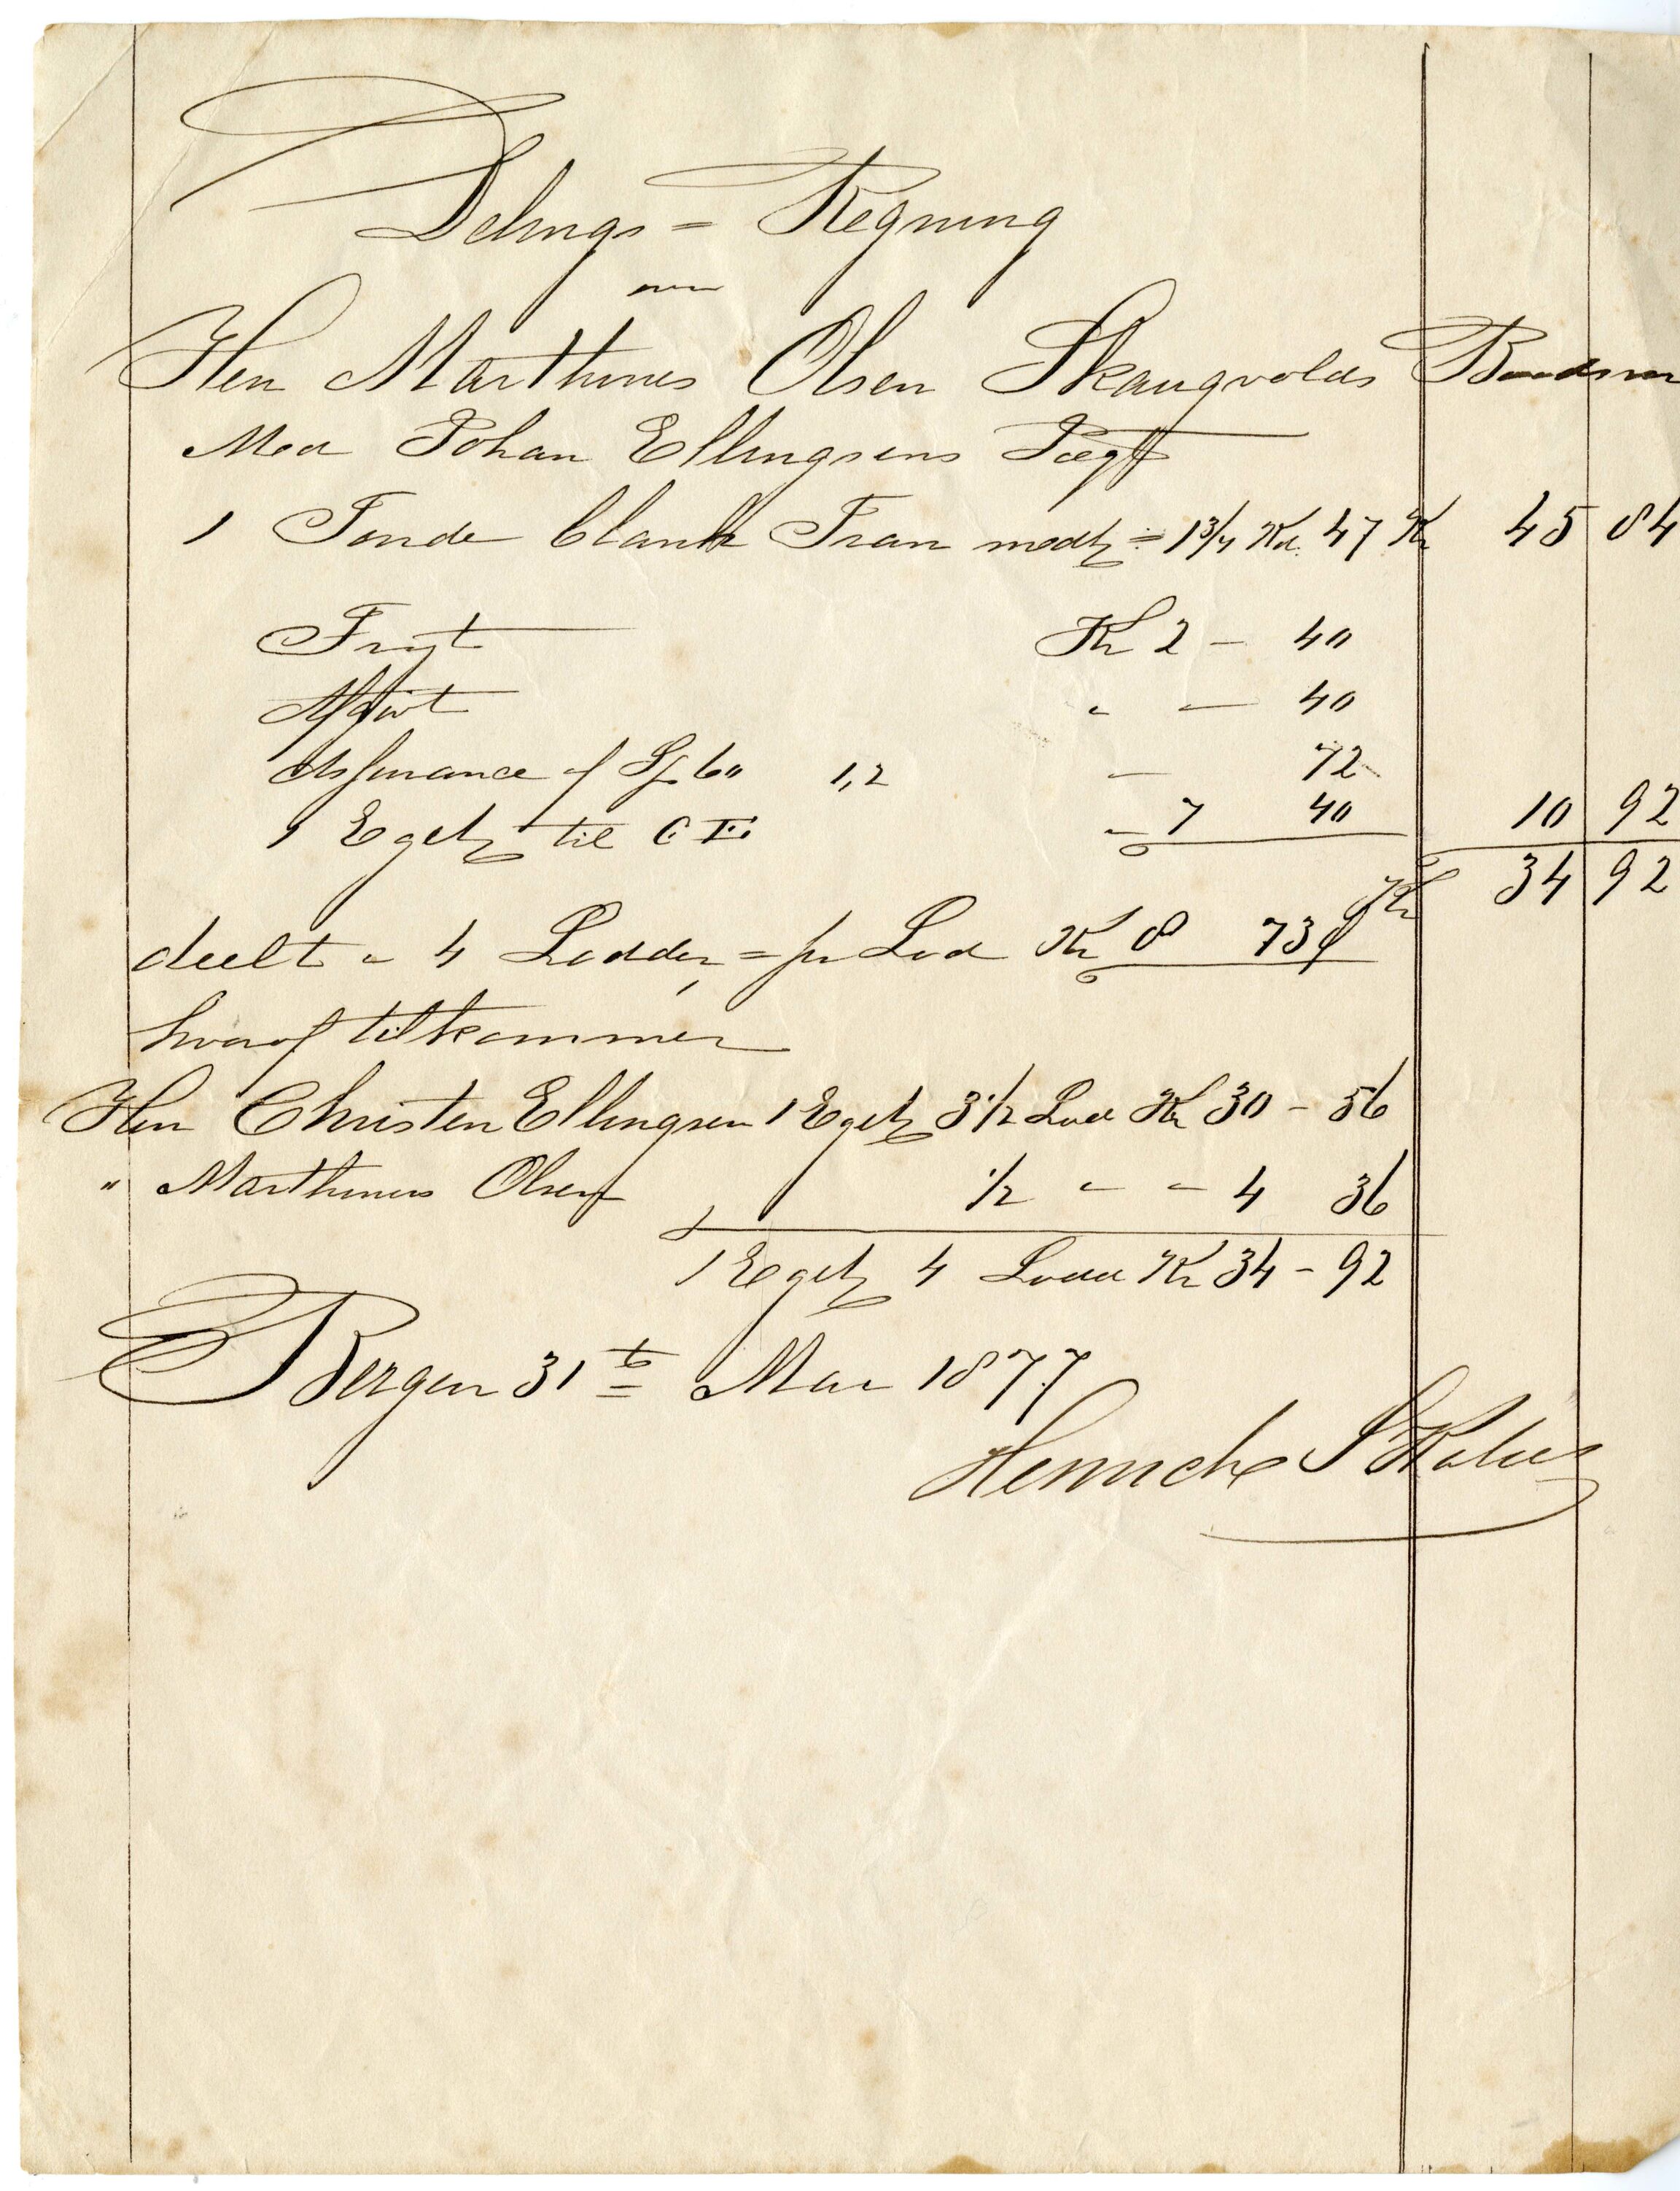 Delings = Regning
over
Herr Marthines Olsen Skaugvolds
Med Johan Ellingsens Jægt
1 Tønde blank Tran 1 3/4 47 Kr 45 84
Fragt Kr 2 - 40
Afgivt " - 40
Assurance af 60 1,2 - 72
1 til C. E. " 7 40 10 92
Kr 34 92
deelt i 4 Lodder = pr Lod Kr 8 73
hvoraf tilkommer
Herr Christen Ellingsen 1 3 1/2 Lod Kr 30 - 56
" Marthines Olsen 1/2 " - 4 36
1 4 Lodd Kr 34 - 92
Bergen 31te Mai 1877
Henrich